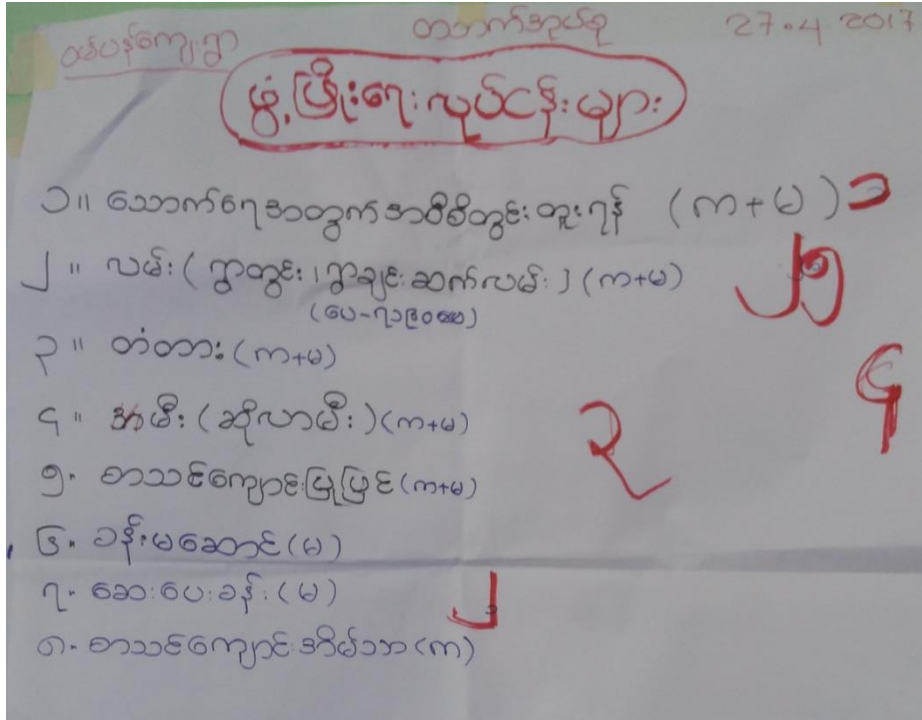 တစ်ပန်ကျေးရွာ တဘက်အုပ်စု 27.4.2017
ဖွံ့ဖြိုးရေးလုပ်ငန်းများ
၁။ သောက်ရေအတွက်အဝီစိတွင်းတူးရန် (က+မ) ၁
၂။ လမ်း (ရွာတွင်း၊ ရွာချင်းဆက်လမ်း) (က+မ) ၂၅
(ပေ-၇၁၉၀
၃။ တံတား (က+မ) ၄
၄။ အမီး (ဆိုလာမီး) (က+မ) ၃
၅။ စာသင်ကျောင်းပြုပြင် (က+မ)
၆။ ခန်းမဆောင် (မ)
၇။ ဆေးပေးခန်း (မ) ၂
၈။ စာသင်ကျောင်းအိမ်သာ (က)